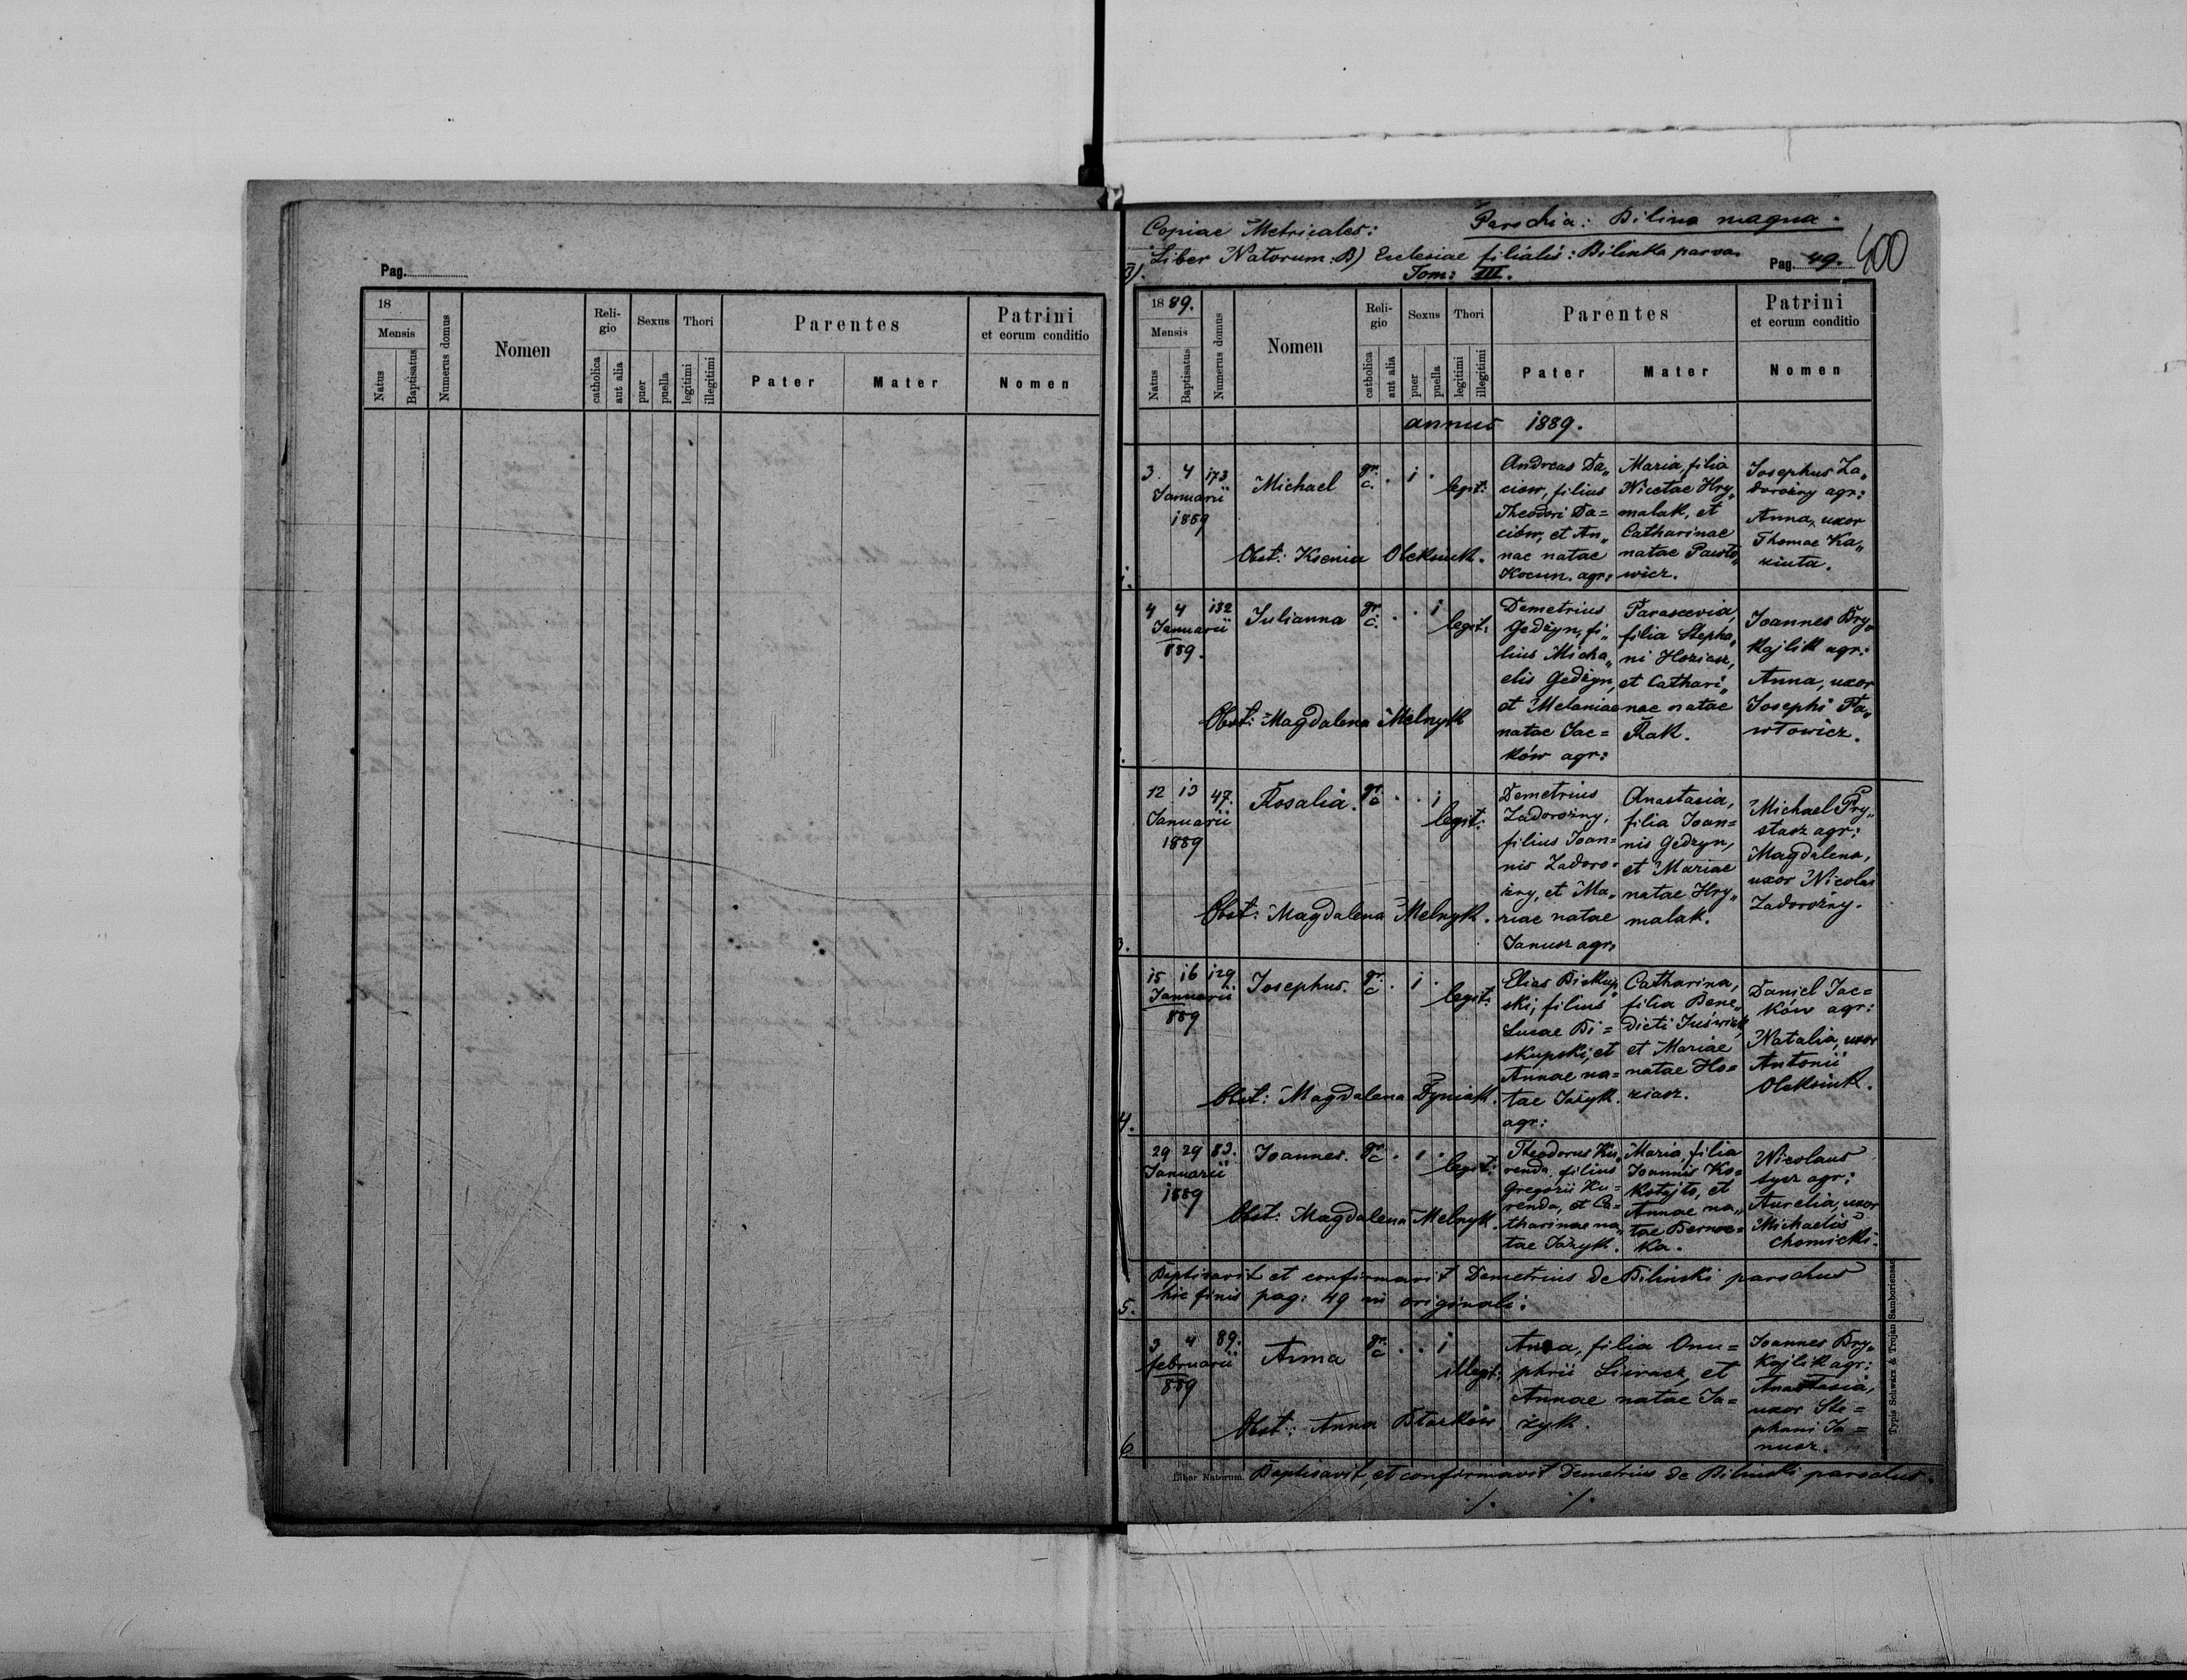 Pag.
18
Mensis
Natus
Baptisatus
Numerus domus
Nomen
Reli-
gio
catholica
aut alia
Sexus
puer
puella
Thori
legitimi
illegitimi
Parentes
Pater
Mater
Patrini
et eorum conditio
Nomen
Copiae Metricales: Parochia: Bilina magna.
Liber Natorum: B) Ecclesiae filialis: Bilinka parva.
Tom: III.
Pag. 49.
400
1889.
Mensis
Natus
Baptisatus
Numerus domus
Nomen
Reli-
gio
catholica
aut alia
Sexus
puer
puella
Thori
legitimi
illegitimi
Parentes
Pater
Mater
Patrini
et eorum conditio
Nomen
annus 1889.
1.
3 4 173
Januarii
1889
Michael
gr. c. . 1 .
legit:
Andreas Da„
ciów, filius
Theodori Da=
ciów, et An„
nae natae
Kocun. agr:
Maria, filia
Nicetae Hry„
malak, et
Catharinae
natae Pawło„
wicz.
Josephus Za„
dorożny agr:
Anna, uxor
Thomae Ka„
ziuta.
Obst: Ksenia Oleksiuk.
4 4 132
Januarii
889.
Julianna
gr. c. . . 1
legit:
Demetrius
Gedzyn, fi„
lius Micha„
elis Gedzyn,
et Melaniae
natae Jac=
ków agr:
Parascevia,
filia Stepha„
ni Hoziasz,
et Cathari„
nae natae
Rak.
Joannes Bry„
kajlik agr:
Anna, uxor
Josephi Pa„
włowicz.
Obst: Magdalena Melnyk
3.
12 13 47.
Januarii
1889
Rosalia.
gr. c . . 1
legit:
Demetrius
Zadorożny,
filius Joan=
nis Zadoro=
żny, et Ma„
riae natae
Janusz agr:
Anastasia,
filia Joan=
nis Gedzyn,
et Mariae
natae Hry„
malak.
Michael Pry„
stasz agr:
Magdalena,
uxor Nicolai
Zadorożny.
Obst: Magdalena Melnyk.
4.
15 16 129
Januarii
889
Josephus.
gr. c . 1 .
legit:
Elias Biskup„
ski, filius
Lucae Bi=
skupski, et
Annae na=
tae Jażyk.
agr:
Catharina,
filia Bene„
dicti Juświak,
et Mariae
natae Ho=
ziasz.
Daniel Jac=
ków agr:
Natalia, uxor
Antonii
Oleksiuk.
Obst: Magdalena Dyniak.
5.
29 29 83.
Januarii
1889
Joannes.
gr. c . 1 .
legit:
Theodorus Ku„
renda, filius
Gregorii Ku=
renda, et Ca=
tharinae na„
tae Jażyk.
Maria, filia
Joannis Ko=
kotajło, et
Annae na„
tae Bernac=
ka.
Nicolaus
Łysz agr:
Aurelia, uxor
Michaelis
Chomicki.
Obst: Magdalena Melnyk.
Baptisavit et confirmavit Demetrius de Bilinski parochus
hic finis pag: 49 in originali:
6
3 4 89.
februarii
889
Anna
gr. c . . 1
illegit:
Anna, filia Onu=
phrii Siwacz, et
Annae natae Ja=
żyk.
Joannes Bry„
kajlik agr:
Anastasia,
uxor Ste=
phani Ja=
nusz.
Obst: Anna Btasków
Liber Natorum. Baptisavit, et confirmavit Demetrius de Bilinski parochus.
./. ./.
Typis Schwarz & Trojan Samboriensae